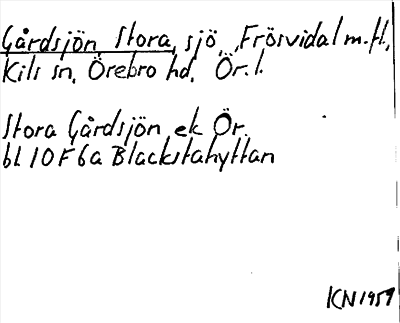 Gårdsjön, Stora, sjö, Frösvidal m.fl.,
Kils sn, Örebro hd, Ör. l.
Stora Gårdsjön ek Ör.
bl 10F6a Blackstahyttan
KN 1959